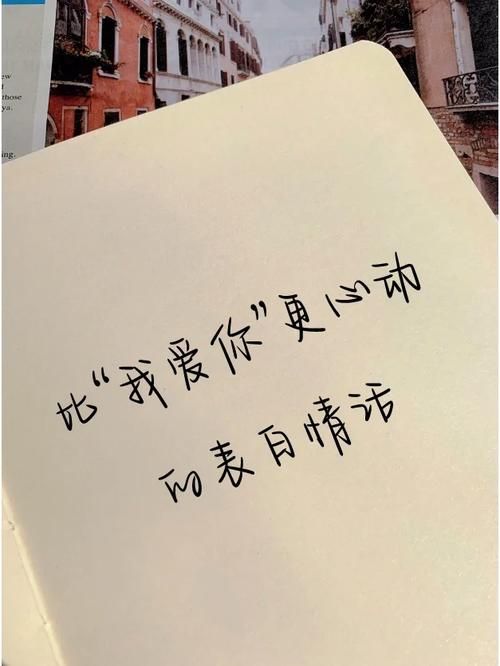 ew
those
ya.
ing.
比“我爱你”更心动
的表白情话